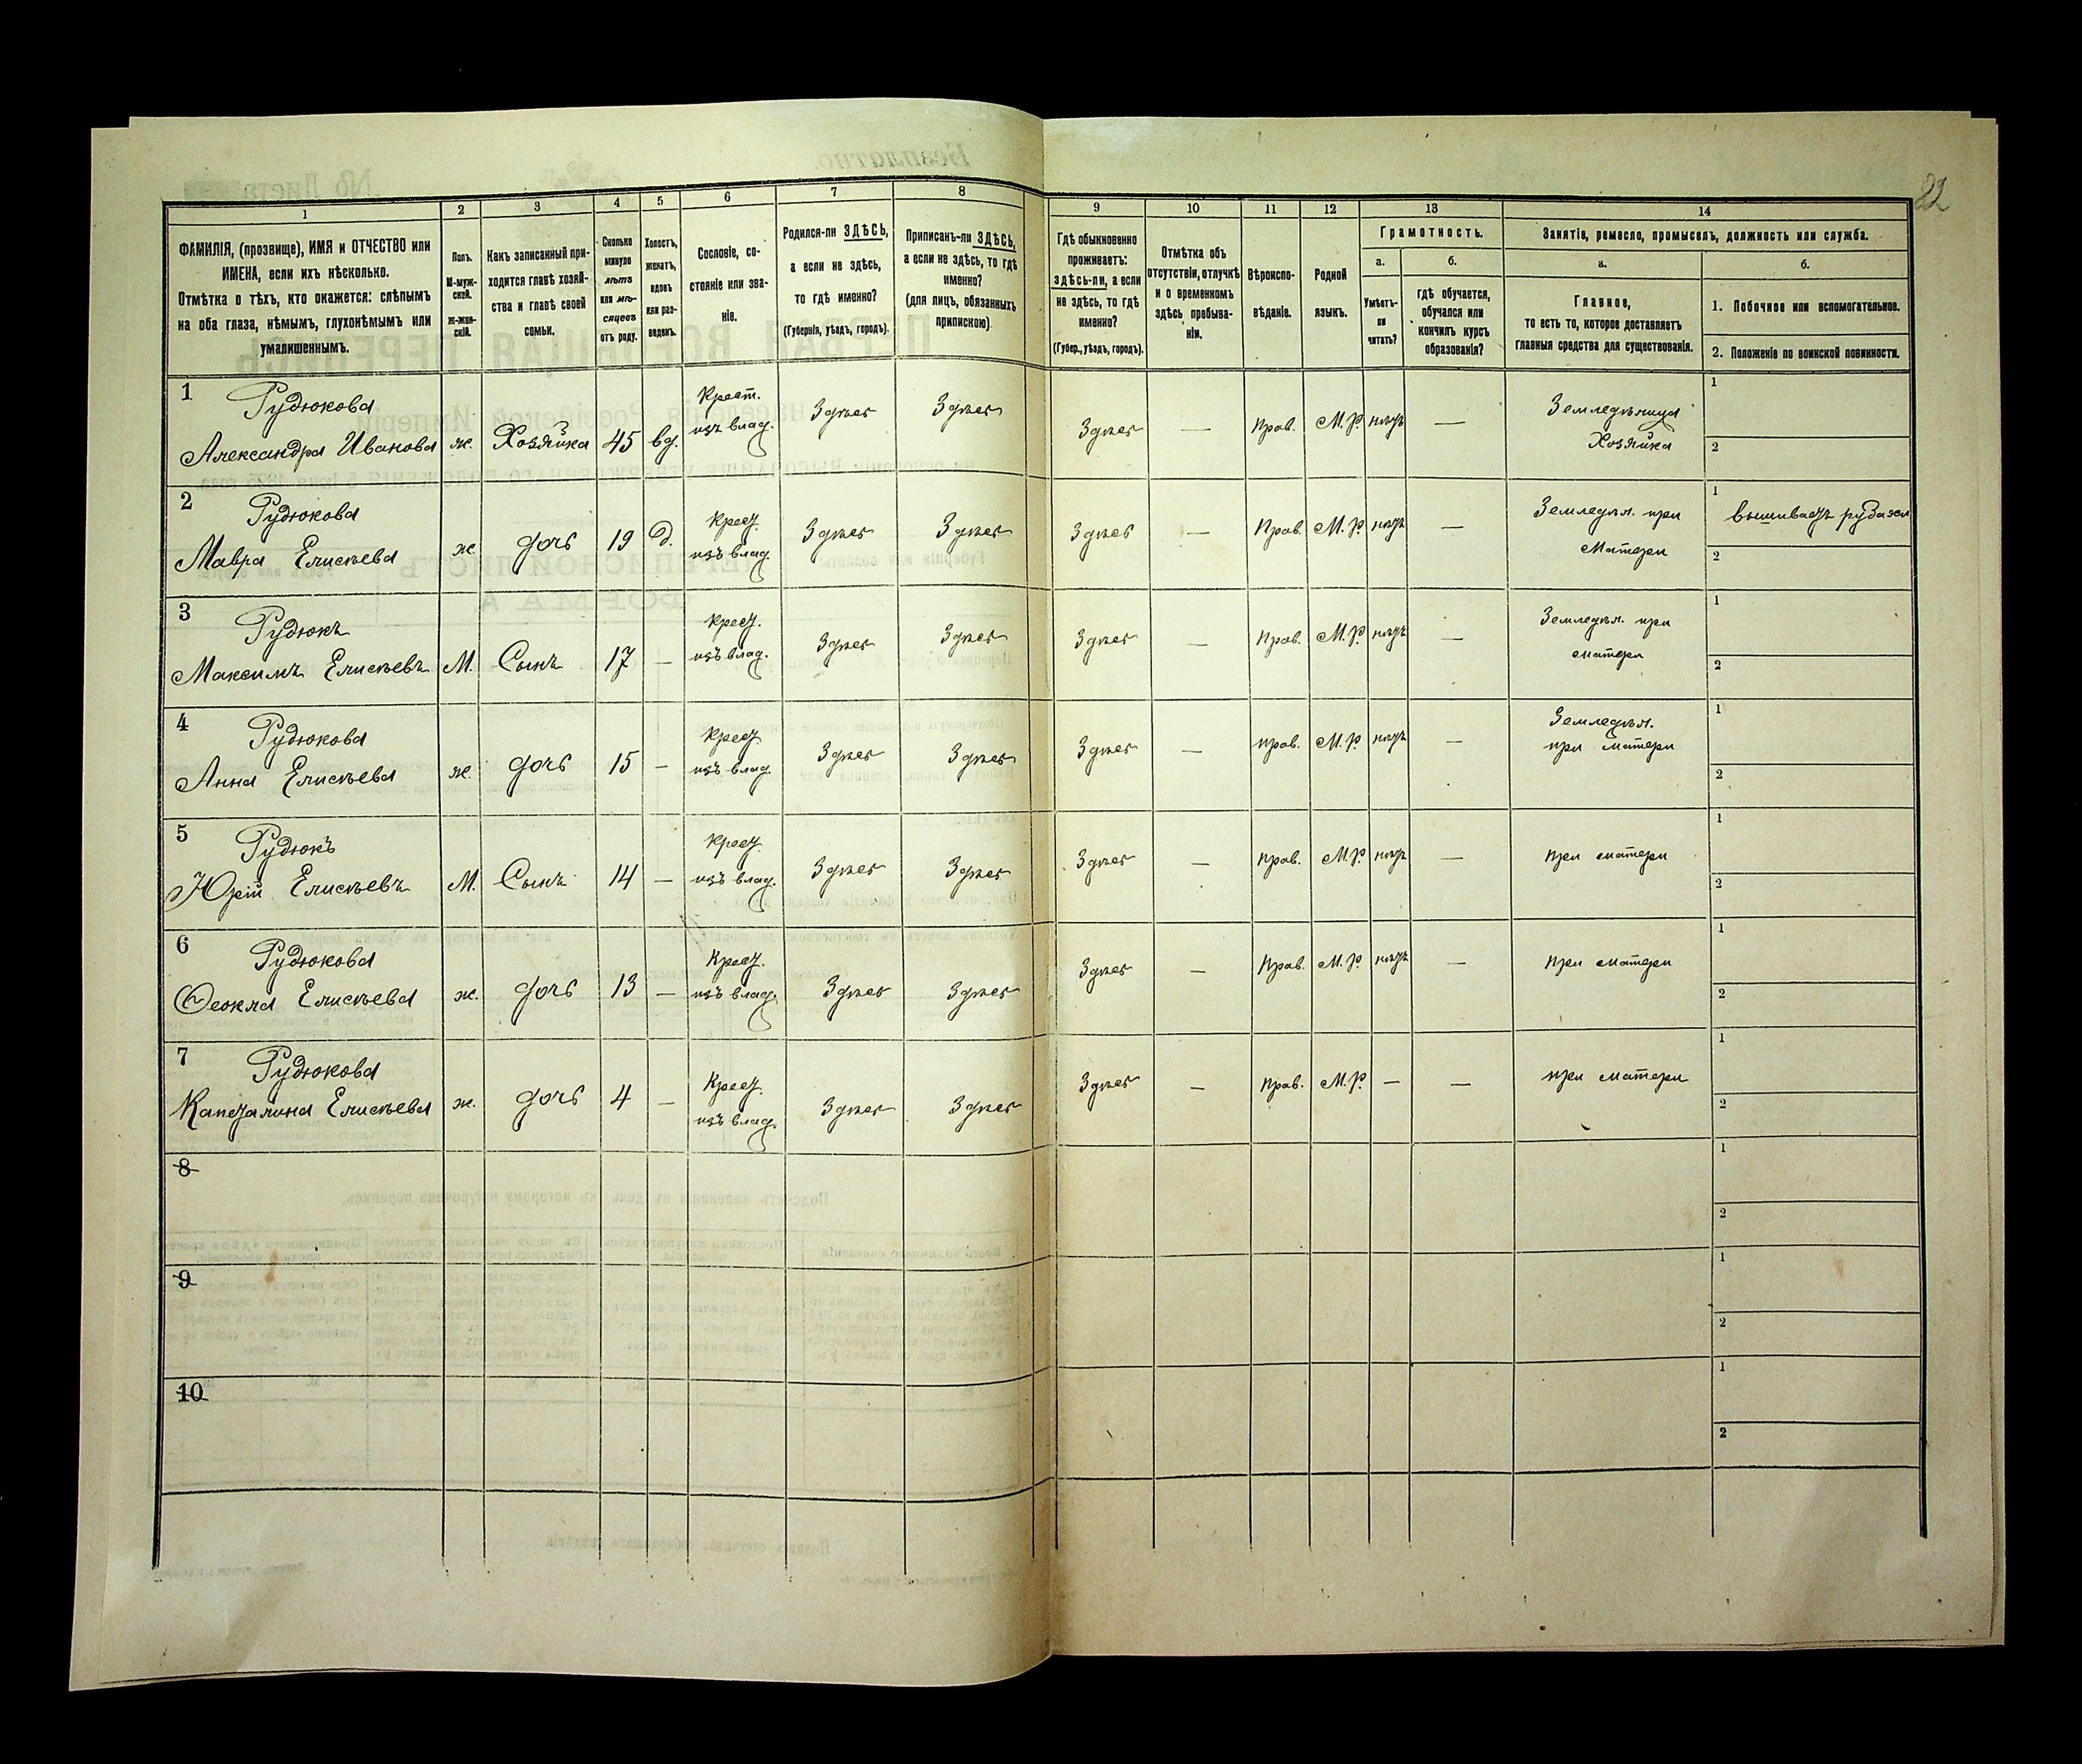 22
1 2 3 4 5 6 7 8 9 10 11 12 13 14
ФАМИЛІЯ, (прозвище), ИМЯ и ОТЧЕСТВО или
ИМЕНА, если ихъ нѣсколько.
Отмѣтка о тѣхъ, кто окажется: слѣпымъ
на оба глаза, нѣмымъ, глухонѣмымъ или
умалишеннымъ.
Полъ.
М-муж-
ской.
Ж-жен-
скій.
Какъ записанный при-
ходится главѣ хозяй-
ства и главѣ своей
семьи.
Сколько
минуло
лѣтъ
или мѣ-
сяцевъ
отъ роду.
Холостъ,
женатъ,
вдовъ
или раз-
веденъ.
Сословіе, со-
стояніе или зва-
ніе.
Родился-ли ЗДѢСЬ,
а если не здѣсь,
то гдѣ именно?
(Губернія, уѣздъ, городъ).
Приписанъ-ли ЗДѢСЬ,
а если не здѣсь, то гдѣ
именно?
(для лицъ, обязанныхъ
припискою)
Гдѣ обыкновенно
проживаетъ:
здѣсь-ли, а если
не здѣсь, то гдѣ
именно?
(Губер., уѣздъ, городъ).
Отмѣтка объ
отсутствіи, отлучкѣ
и о временномъ
здѣсь пребыва-
ніи.
Вѣроиспо-
вѣданіе.
Родной
языкъ.
Грамотность.
а.
Умѣетъ-
ли
читать?
б.
гдѣ обучается,
обучался или
кончилъ курсъ
образованія?
Занятіе, ремесло, промыселъ, должность или служба.
а.
Главное,
то есть то, которое доставляетъ
главныя средства для существованія.
б.
1. Побочное или вспомогательное.
2. Положеніе по воинской повинности.
1 Рудюкова
Александра Иванова ж. Хозяйка 45 вд. Крест. изъ влад. Здѣсь Здѣсь Здѣсь — Прав. М.р. нѣтъ — Земледѣлица Хозяйка 1 2
2 Рудюкова
Мавра Елисѣева ж дочь 19 д. Крест. изъ влад. Здѣсь Здѣсь Здѣсь — Прав. М.р. нѣтъ — Земледѣл. при матери 1 вышиваетъ 2
3 Рудюкъ
Максимъ Елисѣевъ М. Сынъ 17 — Крест. изъ влад. Здѣсь Здѣсь Здѣсь — Прав. М.р. нѣтъ — Земледѣл. при матери 1 2
4 Рудюкова
Анна Елисѣева ж. дочь 15 — Крест. изъ влад. Здѣсь Здѣсь Здѣсь — прав. М.р. нѣтъ — Земледѣл. при матери 1 2
5 Рудюкъ
Юрій Елисѣевъ М. Сынъ 14 — Крест. изъ влад. Здѣсь Здѣсь Здѣсь — прав. М.р. нѣтъ — при матери 1 2
6 Рудюкова
Ѳеокла Елисѣева ж. дочь 13 — Крест. изъ влад. Здѣсь Здѣсь Здѣсь — Прав. М.р. нѣтъ — при матери 1 2
7 Рудюкова
Капеталина Елисѣева ж. дочь 4 — Крест. изъ влад. Здѣсь Здѣсь Здѣсь — прав. М.р. — — при матери 1 2
8 1 2
9 1 2
10 1 2